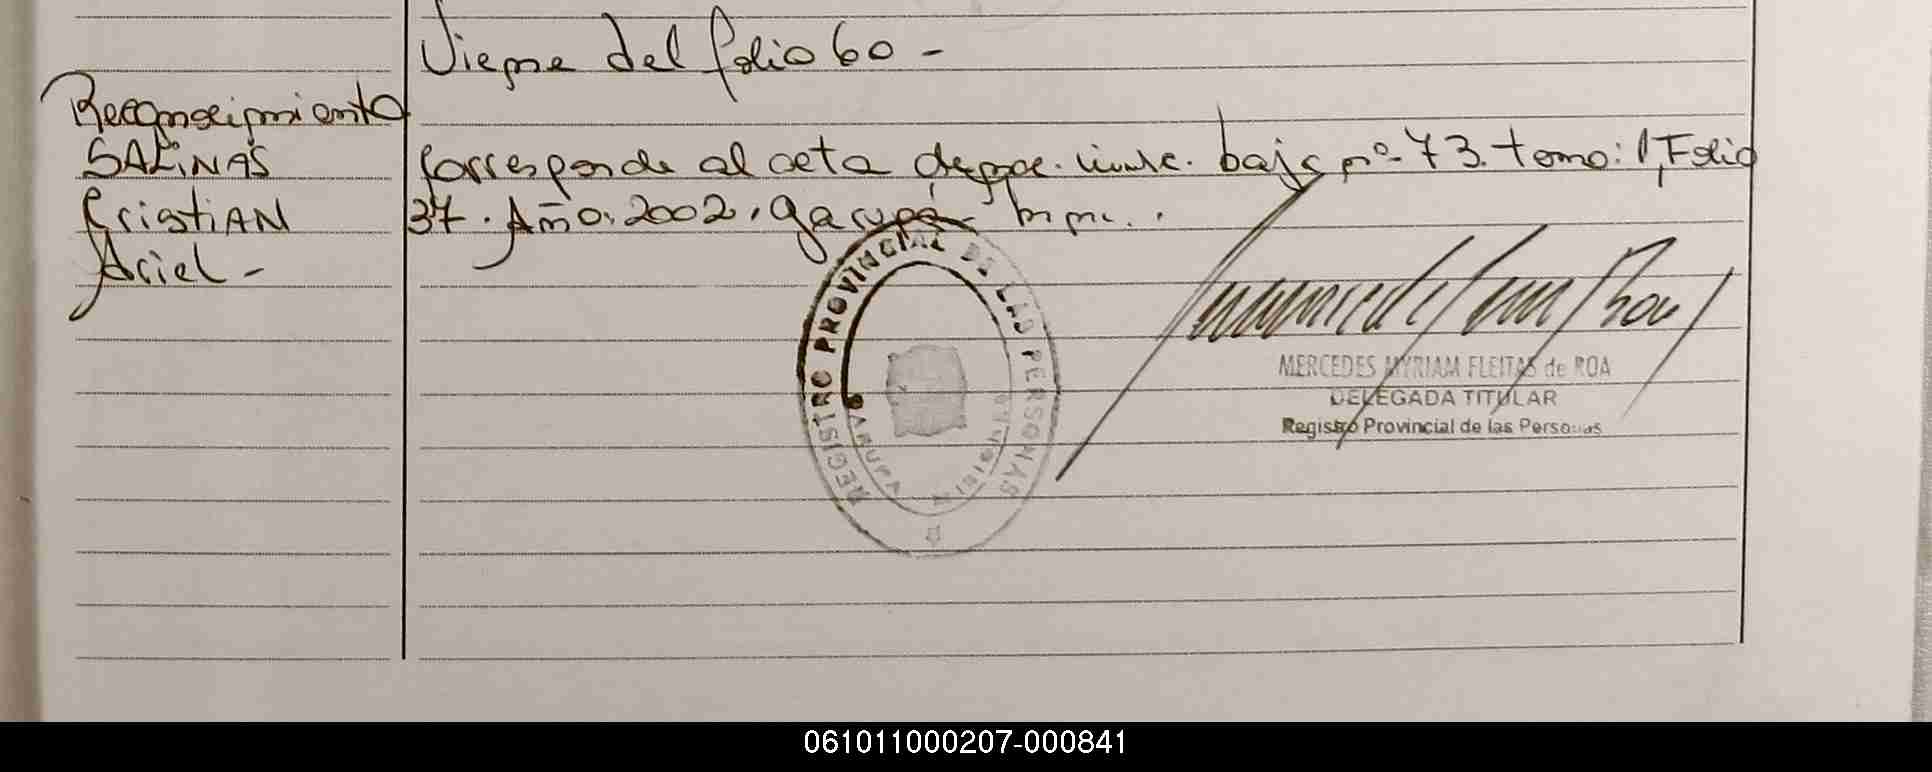 Viene del folio 60 -
Reconocimiento
SALiNAS
CristiAN
Ariel -
Corresponde al acta de nac. bajo nº 73. tomo: 1, Folio
37. Año. 2002. Garupá
REGISTRO PROVINCIAL DE LAS PERSONAS
GARUPA
MISIONES
MERCEDES MYRIAM FLEITAS de ROA
DELEGADA TITULAR
Registro Provincial de las Personas
061011000207-000841